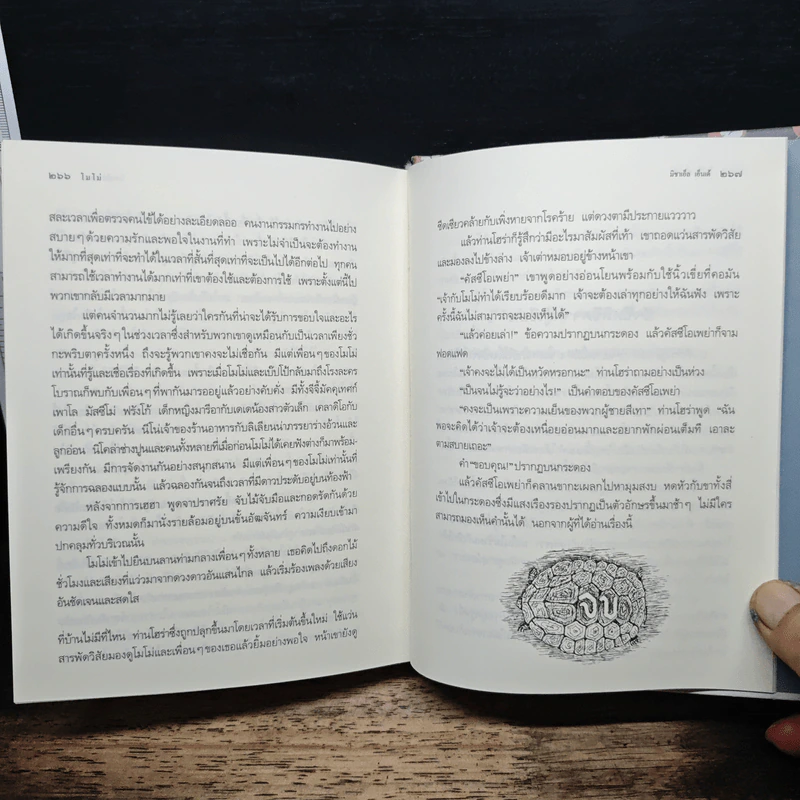 ๒๖๖ โมโม่
สละเวลาเพื่อตรวจคนไข้ได้อย่างละเอียดลออ คนงานกรรมกรทำงานไปอย่าง
สบายๆ ด้วยความรักและพอใจในงานที่ทำ เพราะไม่จำเป็นจะต้องทำงาน
ให้มากที่สุดเท่าที่จะทำได้ในเวลาที่สั้นที่สุดเท่าที่จะเป็นไปได้อีกต่อไป ทุกคน
สามารถใช้เวลาทำงานได้มากเท่าที่เขาต้องใช้และต้องการใช้ เพราะตั้งแต่นี้ไป
พวกเขากลับมีเวลามากมาย
แต่คนจำนวนมากไม่รู้เลยว่าใครกันที่น่าจะได้รับการขอบใจและอะไร
ได้เกิดขึ้นจริงๆ ในช่วงเวลาซึ่งสำหรับพวกเขาดูเหมือนกับเป็นเวลาเพียงชั่ว
กะพริบตาครั้งหนึ่ง ถึงจะรู้พวกเขาคงจะไม่เชื่อกัน มีแต่เพื่อนๆ ของโมโม่
เท่านั้นที่รู้และเชื่อเรื่องที่เกิดขึ้น เพราะเมื่อโมโม่และเบ๊ปโป้กลับมาถึงโรงละคร
โบราณก็พบกับเพื่อนๆ ที่พากันมารออยู่แล้วอย่างคับคั่ง มีทั้งจีจี้มัคคุเทศก์
เพาโล มัสซีโม่ ฟรังโก้ เด็กหญิงมารีอากับเดเดน้องสาวตัวเล็ก เคลาดิโอกับ
เด็กอื่นๆ ครบครัน นีโน่เจ้าของร้านอาหารกับลิเลียนน่าภรรยาร่างอ้วนและ
ลูกอ่อน นิโคล่าช่างปูนและคนทั้งหลายที่เมื่อก่อนโมโม่ได้เคยฟังต่างก็มาพร้อม-
เพรียงกัน มีการจัดงานกันอย่างสนุกสนาน มีแต่เพื่อนๆ ของโมโม่เท่านั้นที่
รู้จักการฉลองแบบนั้น แล้วฉลองกันจนถึงเวลาที่มีดาวประดับอยู่บนท้องฟ้า
หลังจากการเฮฮา พูดจาปราศรัย จับไม้จับมือและกอดรัดกันด้วย
ความดีใจ ทั้งหมดก็มานั่งรายล้อมอยู่บนชั้นอัฒจันทร์ ความเงียบเข้ามา
ปกคลุมทั่วบริเวณนั้น
โมโม่เข้าไปยืนบนลานท่ามกลางเพื่อนๆ ทั้งหลาย เธอคิดไปถึงดอกไม้
ชั่วโมงและเสียงที่แว่วมาจากดวงดาวอันแสนไกล แล้วเริ่มร้องเพลงด้วยเสียง
อันชัดเจนและสดใส
ที่บ้านไม่มีที่ไหน ท่านโฮร่าซึ่งถูกปลุกขึ้นมาโดยเวลาที่เริ่มต้นขึ้นใหม่ ใช้แว่น
สารพัดวิสัยมองดูโมโม่และเพื่อนๆ ของเธอแล้วยิ้มอย่างพอใจ หน้าเขายังดู
มิชาเอ็ล เอ็นเด้ ๒๖๗
ซีดเซียวคล้ายกับเพิ่งหายจากโรคร้าย แต่ดวงตามีประกายแวววาว
แล้วท่านโฮร่าก็รู้สึกว่ามีอะไรมาสัมผัสที่เท้า เขาถอดแว่นสารพัดวิสัย
และมองลงไปข้างล่าง เจ้าเต่าหมอบอยู่ข้างหน้าเขา
“คัสซีโอเพย่า” เขาพูดอย่างอ่อนโยนพร้อมกับใช้นิ้วเขี่ยที่คอมัน
“เจ้ากับโมโม่ทำได้เรียบร้อยดีมาก เจ้าจะต้องเล่าทุกอย่างให้ฉันฟัง เพราะ
ครั้งนี้ฉันไม่สามารถจะมองเห็นได้”
“แล้วค่อยเล่า!” ข้อความปรากฏบนกระดอง แล้วคัสซีโอเพย่าก็จาม
ฟอดแฟด
“เจ้าคงจะไม่ได้เป็นหวัดหรอกนะ” ท่านโฮร่าถามอย่างเป็นห่วง
“เป็นจนไม่รู้จะว่าอย่างไร!” เป็นคำตอบของคัสซีโอเพย่า
“คงจะเป็นเพราะความเย็นของพวกผู้ชายสีเทา” ท่านโฮร่าพูด “ฉัน
พอจะคิดได้ว่าเจ้าจะต้องเหนื่อยอ่อนมากและอยากพักผ่อนเต็มที เอาละ
ตามสบายเถอะ”
คำ “ขอบคุณ!” ปรากฏบนกระดอง
แล้วคัสซีโอเพย่าก็คลานขากะเผลกไปหามุมสงบ หดหัวกับขาทั้งสี่
เข้าไปในกระดองซึ่งมีแสงเรืองรองปรากฏเป็นตัวอักษรขึ้นมาช้าๆ ไม่มีใคร
สามารถมองเห็นคำนั้นได้ นอกจากผู้ที่ได้อ่านเรื่องนี้
จบ